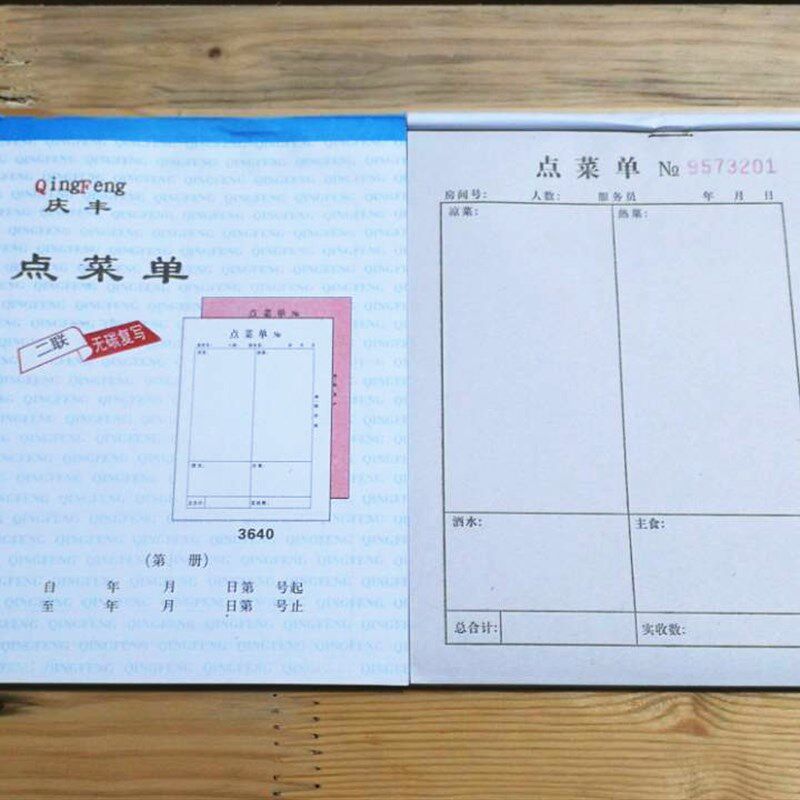 QingFeng
庆丰
点菜单
二联 无碳复写
点菜单 №
点菜单 №
3640
(第 册)
自 年 月 日第 号起
至 年 月 日第 号止
点菜单 № 9573201
房间号: 人数: 服务员 年 月 日
凉菜: 热菜:
酒水: 主食:
总合计: 实收数: